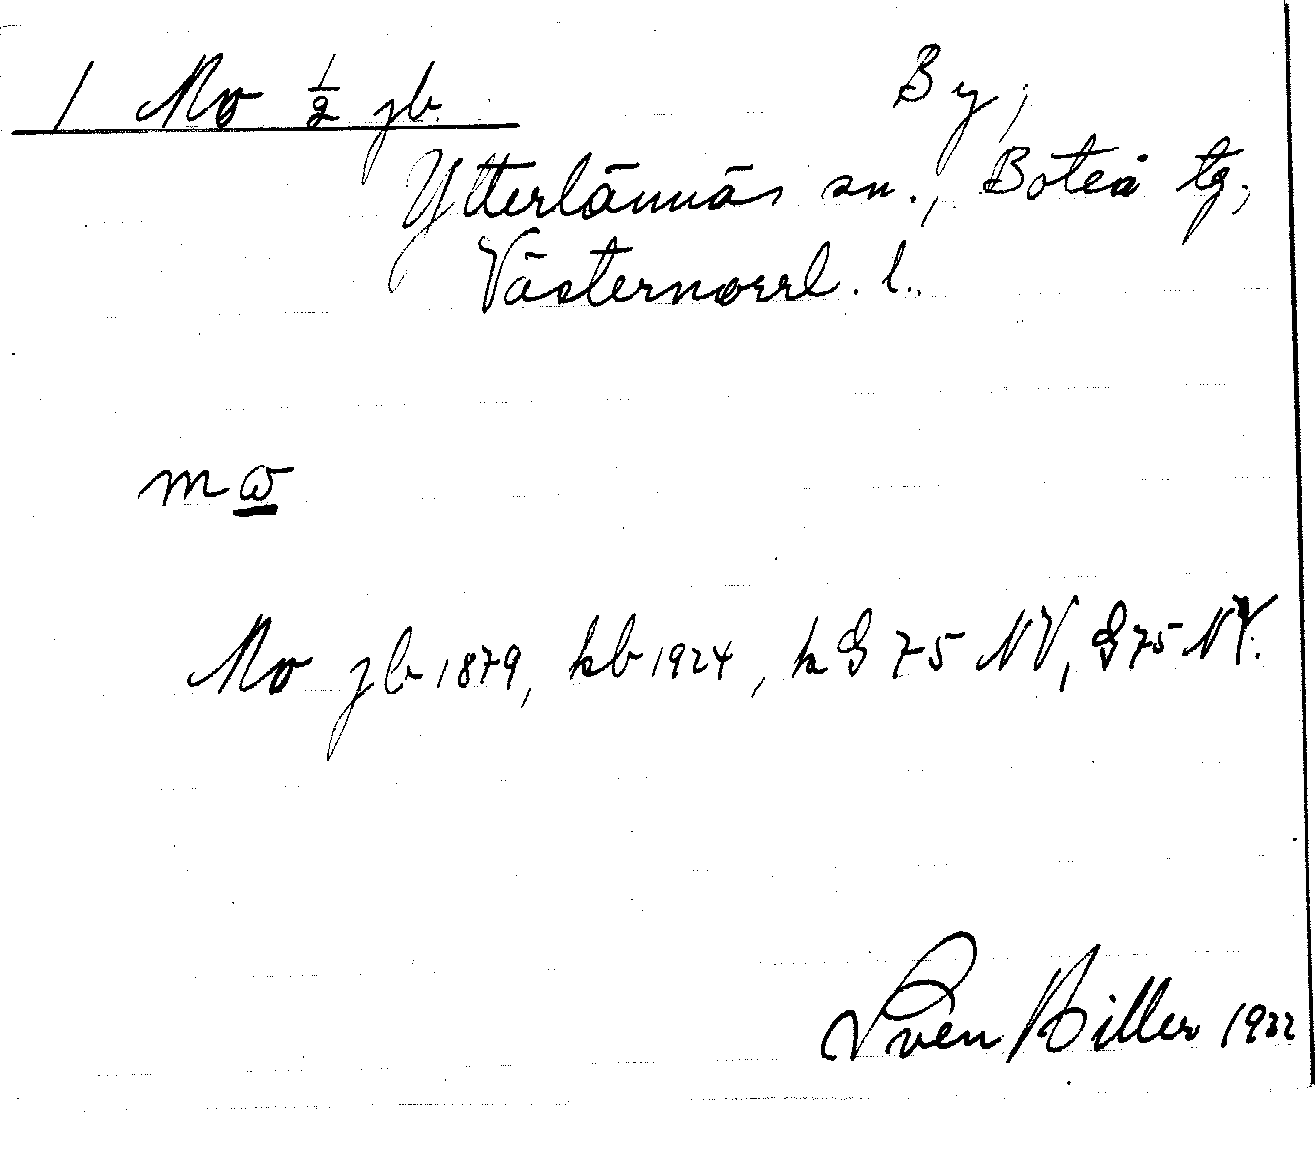 1 Mo ½ jb. By,
Ytterlännäs sn., Boteå tg,
Västernorrl. l.
mω
Mo jb 1879, kb 1924, k G 75 NV, G 75 NV.
Sven Hiller 1922